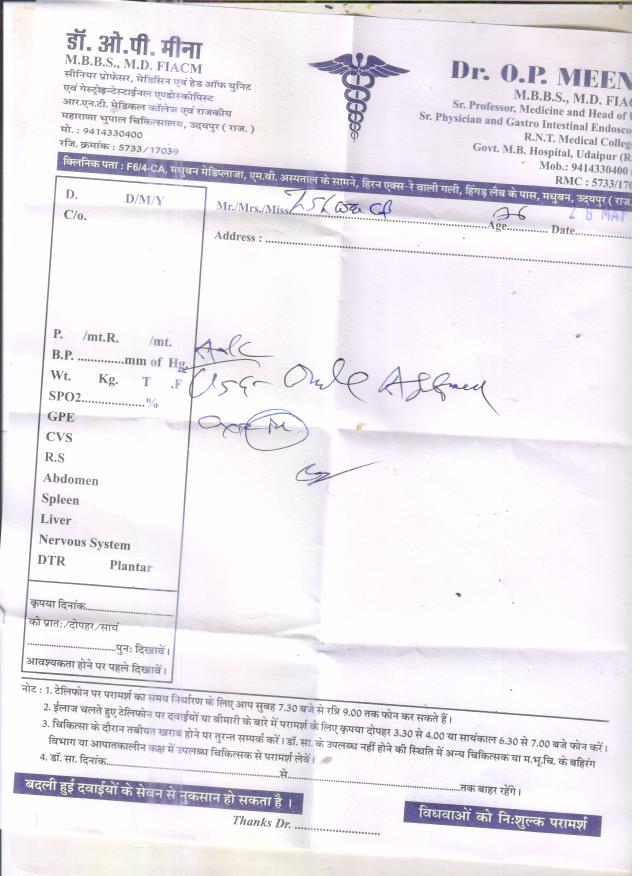 डॉ. ओ.पी. मीना
M.B.B.S., M.D. FIACM
सीनियर प्रोफेसर, मेडिसिन एवं हेड ऑफ युनिट
एवं गेस्ट्रोइन्टेस्टाईनल एण्डोस्कोपिस्ट
आर.एन.टी. मेडिकल कॉलेज एवं राजकीय
महाराणा भुपाल चिकित्सालय, उदयपुर ( राज. )
मो. : 9414330400
रजि. क्रमांक : 5733/17039
Dr. O.P. MEEN
M.B.B.S., M.D. FIAC
Sr. Professor, Medicine and Head of U
Sr. Physician and Gastro Intestinal Endosco
R.N.T. Medical College
Govt. M.B. Hospital, Udaipur (R
Mob.: 9414330400
RMC : 5733/170
क्लिनिक पता : F6/4-CA, मधुबन मेडिप्लाजा, एम.बी. अस्पताल के सामने, हिरन एक्स-रे वाली गली, हिंगड़ लैब के पास, मधुबन, उदयपुर ( राज.
D. D/M/Y
C/o.
Mr./Mrs./Miss Age Date 28 MAY
Address :
P. /mt.R. /mt.
B.P. ..............mm of Hg.
Wt. Kg. T .F
SPO2...................%
GPE
CVS
R.S
Abdomen
Spleen
Liver
Nervous System
DTR Plantar
कृपया दिनांक
को प्रातः/दोपहर/सायं
पुनः दिखावें।
आवश्यकता होने पर पहले दिखावें।
नोट : 1. टेलिफोन पर परामर्श का समय निर्धारण के लिए आप सुबह 7.30 बजे से रात्रि 9.00 तक फोन कर सकते हैं।
2. ईलाज चलते हुए टेलिफोन पर दवाईयों या बीमारी के बारे में परामर्श के लिए कृपया दोपहर 3.30 से 4.00 या सायंकाल 6.30 से 7.00 बजे फोन करें।
3. चिकित्सा के दौरान तबीयत खराब होने पर तुरन्त सम्पर्क करें। डॉ. सा. के उपलब्ध नहीं होने की स्थिति में अन्य चिकित्सक या म.भू.चि. के बहिरंग
विभाग या आपातकालीन कक्ष में उपलब्ध चिकित्सक से परामर्श लेवें।
4. डॉ. सा. दिनांक से तक बाहर रहेंगे।
बदली हुई दवाईयों के सेवन से नुकसान हो सकता है।
विधवाओं को निःशुल्क परामर्श
Thanks Dr.